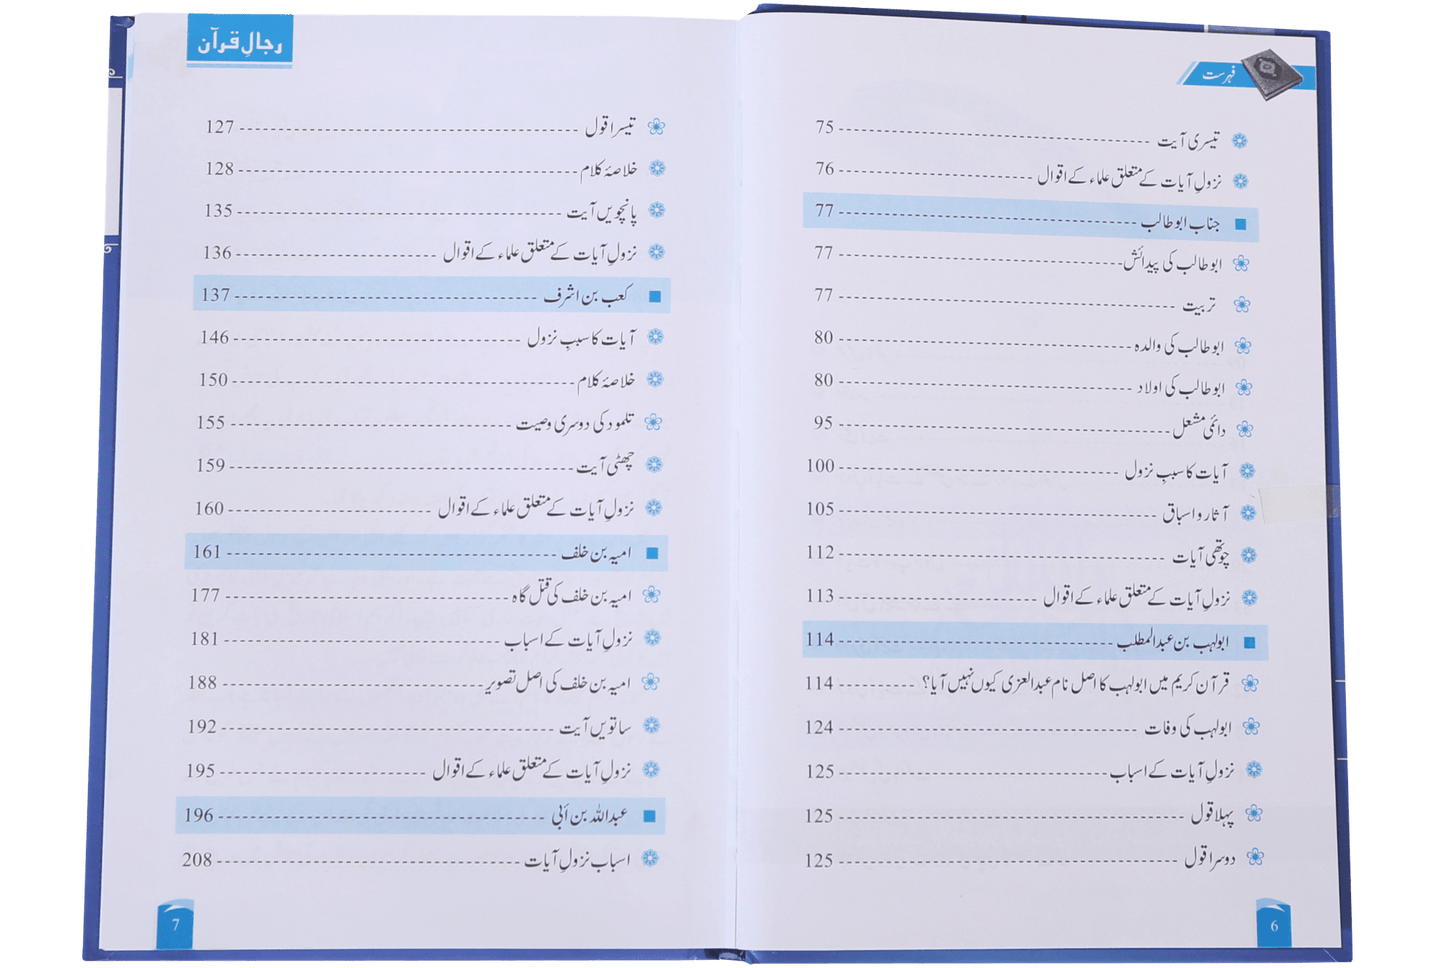 فہرست
تیسری آیت 75
نزولِ آیات کے متعلق علماء کے اقوال 76
جناب ابوطالب 77
ابوطالب کی پیدائش 77
تربیت 77
ابوطالب کی والدہ 80
ابوطالب کی اولاد 80
دائمی مشعل 95
آیات کا سببِ نزول 100
آثار و اسباق 105
چوتھی آیات 112
نزولِ آیات کے متعلق علماء کے اقوال 113
ابولہب بن عبدالمطلب 114
قرآن کریم میں ابولہب کا اصل نام عبدالعزی کیوں نہیں آیا؟ 114
ابولہب کی وفات 124
نزولِ آیات کے اسباب 125
پہلا قول 125
دوسرا قول 125
6
رجالِ قرآن
تیسرا قول 127
خلاصۂ کلام 128
پانچویں آیت 135
نزولِ آیات کے متعلق علماء کے اقوال 136
کعب بن اشرف 137
آیات کا سببِ نزول 146
خلاصۂ کلام 150
تلمود کی دوسری وصیت 155
چھٹی آیت 159
نزولِ آیات کے متعلق علماء کے اقوال 160
امیہ بن خلف 161
امیہ بن خلف کی قتل گاہ 177
نزولِ آیات کے اسباب 181
امیہ بن خلف کی اصل تصویر 188
ساتویں آیت 192
نزولِ آیات کے متعلق علماء کے اقوال 195
عبداللہ بن أبی 196
اسباب نزولِ آیات 208
7